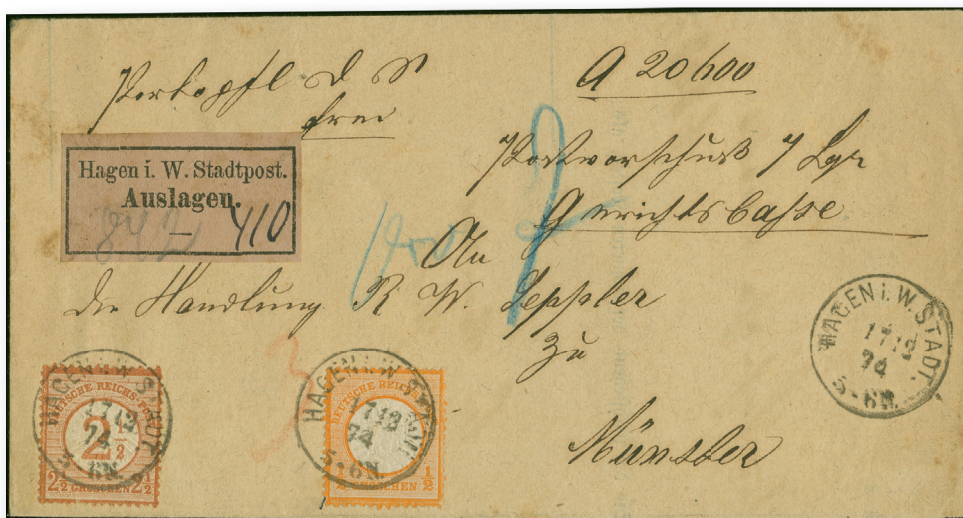 A 20600
Portopfl D S
frei
Hagen i. W. Stadtpost.
Auslagen.
842 – 410
Postvorschuß 7 Sgr
Gerichtskasse
An
die Handlung R W. Seppler
zu
Münster
HAGEN i. W. STADT.
17 12
74
5-6N.
HAGEN i. W. STADT.
17 12
74
5-6N.
DEUTSCHE REICHS-POST
2 1/2
2 1/2 GROSCHEN 2 1/2
HAGEN i. W. STADT.
17 12
74
5-6N.
DEUTSCHE REICHS-POST
GROSCHEN 1/2